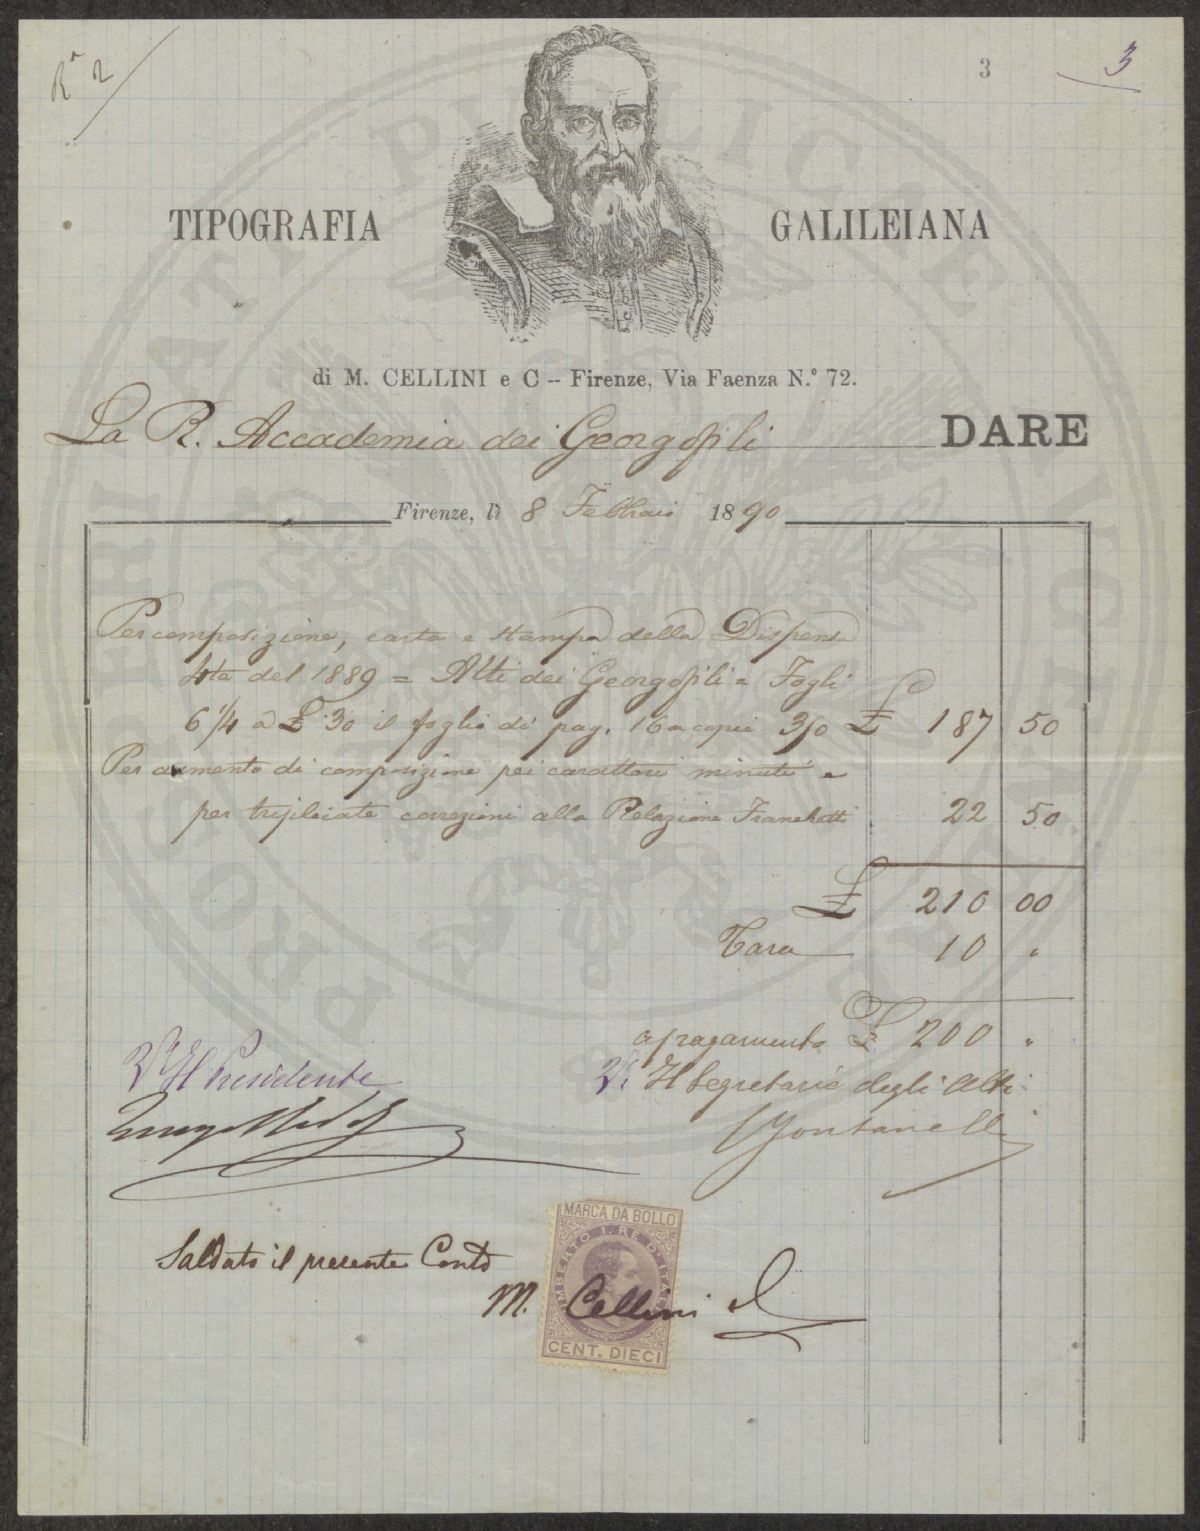 Rª 2
3
3
TIPOGRAFIA GALILEIANA
di M. CELLINI e C -- Firenze, Via Faenza N.º 72.
La R. Accademia dei Georgofili DARE
Firenze, lì 8 Febbraio 1890
Per composizione, carta e stampa della Dispensa
4ta del 1889 = Atti dei Georgofili = Fogli
6 1/4 a £ 30 il foglio di pag. 16 a copie 350 £ 187 50
Per aumento di composizione pei caratteri minuti e
per triplicate correzioni alla Relazione Franchetti 22 50
£ 210 00
Tara 10 "
a pagamento £ 200 "
V° Il Presidente
V. Il Segretario degli Atti
Fontanelli
MARCA DA BOLLO
UMBERTO I. RE D'ITALIA
Saldato il presente Conto
M. Cellini
CENT. DIECI
PROSPERITATI PUBLICAE AUGENDAE